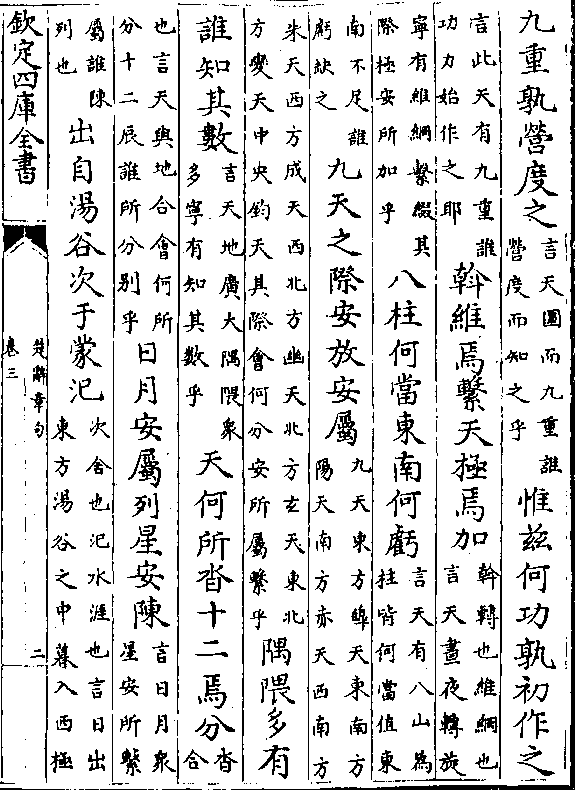 九重孰營度之言天圜而九重誰營度而知之乎惟兹何功孰初作之
言此天有九重誰功力始作之耶斡維焉繫天極焉加斡轉也維綱也言天晝夜轉旋
寧有維綱繫綴其際極安所加乎八柱何當東南何虧言天有八山為柱皆何當值東
南不足誰虧缺之九天之際安放安屬九天東方皥天東南方陽天南方赤天西南方
朱天西方成天西北方幽天北方玄天東北方變天中央鈞天其際會何分安所屬繫乎隅隈多有
誰知其數言天地廣大隅隈衆多寧有知其數乎天何所沓十二焉分沓合
也言天與地合會何所分十二辰誰所分别乎日月安屬列星安陳言日月衆星安所繫
屬誰陳列也出自湯谷次于蒙汜次舍也汜水涯也言日出東方湯谷之中暮入西極
欽定四庫全書
楚辭章句
卷三
二